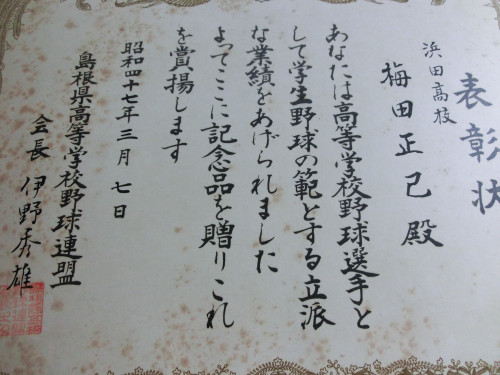 表彰状
浜田高校
梅田正己殿
あなたは高等学校野球選手と
して学生野球の範とする立派
な業績をあげられました
よってここに記念品を贈りこれ
を賞揚します
昭和四十七年三月七日
島根県高等学校野球連盟
会長 伊野秀雄